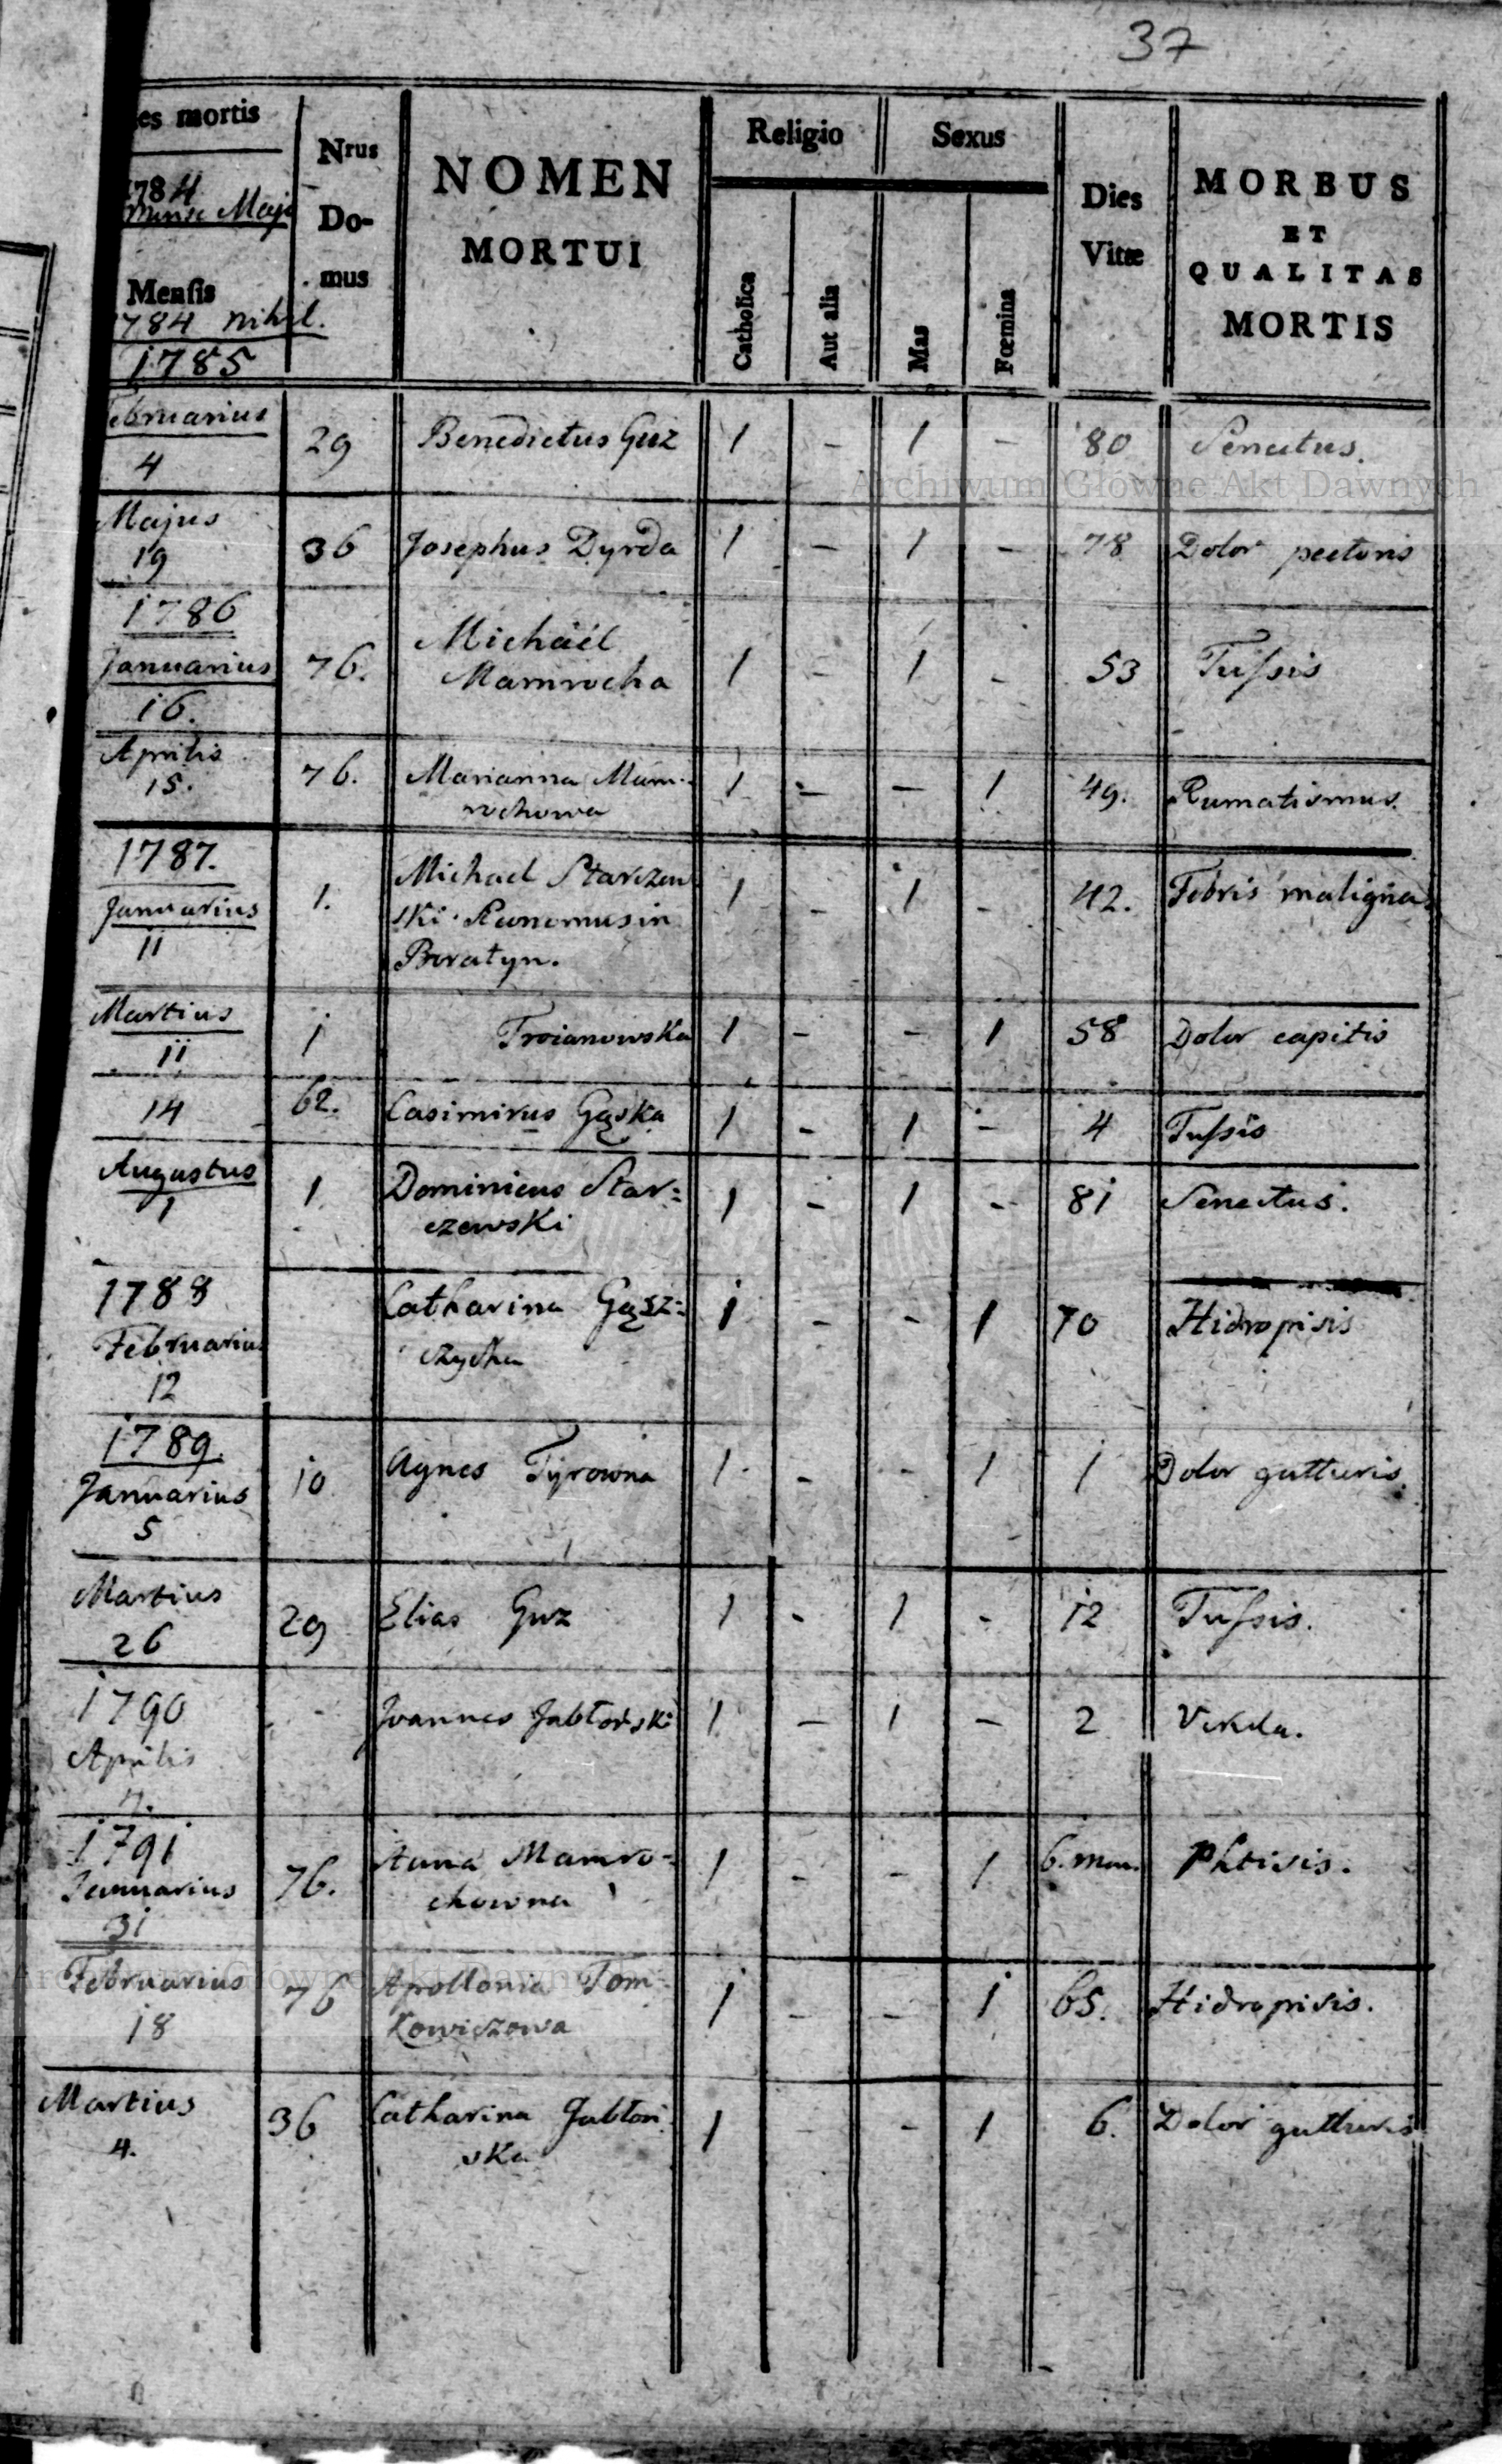 37
es mortis
1784
Mense Maji
Mensis
1784 nihil.
1785
Nrus
Do-
mus
NOMEN
MORTUI
Religio
Catholica
Aut alia
Sexus
Mas
Fœmina
Dies
Vitæ
MORBUS
ET
QUALITAS
MORTIS
Februarius
4
29 Benedictus Guz 1 - 1 - 80 Senectus.
Archiwum Główne Akt Dawnych
Majus
19
36 Josephus Dyrda 1 - 1 - 78 Dolor pectoris
1786
Januarius
16.
76. Michäel
Mamrocha 1 - 1 - 53 Tussis
Aprilis
15.
76. Marianna Mam-
rochowa 1 - - 1 49. Rumatismus.
1787.
Januarius
11
1. Michael Starzew
ski
in
Boratyn. 1 - 1 - 42. Febris maligna
Martius
11
1 Troianowska 1 - - 1 58 Dolor capitis
14 62. Casimirus Gąska 1 - 1 - 4 Tussis
Augustus
1
1 Dominicus Star=
czewski 1 - 1 - 81 Senectus.
1788
Februarius
12
Catharina Gąsz=
czycha 1 - - 1 70 Hidropisis
1789.
Januarius
5
10 Agnes Tyrowna 1 - - 1 1 Dolor gutturis.
Martius
26
29 Elias Guz 1 - 1 - 12 Tussis.
1790
Aprilis
- Joannes Jabłoński 1 - 1 - 2
1791
Januarius
31
76. Anna Mamro-
chowna 1 - - 1 6. men. Phtisis.
Archiwum Główne Akt Dawnych
Februarius
18
76 Apollonia Tom-
kowiczowa 1 - - 1 65. Hidropisis.
Martius
4.
36 Catharina Jabłoń
ska 1 - - 1 6. Dolor gutturis